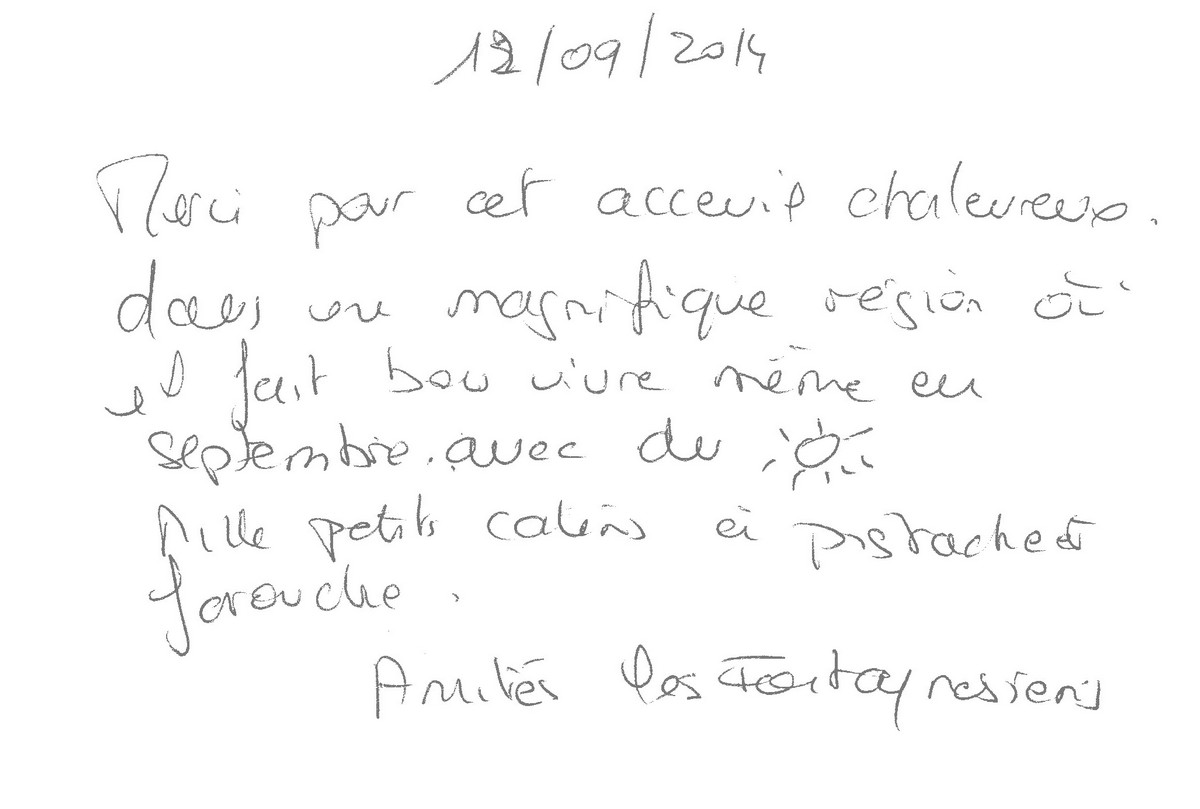 12/09/2014
Merci pour cet acceuil chaleureux.
dans une magnifique région où
il fait bon vivre même en
septembre. avec du
Mille petits calins à pistache et
farouche.
Amitiés les